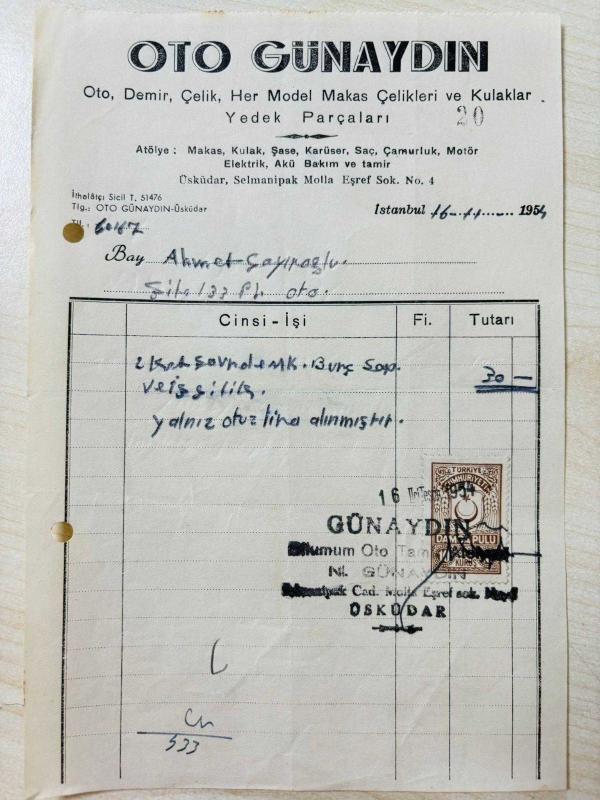 OTO GÜNAYDIN
Oto, Demir, Çelik, Her Model Makas Çelikleri ve Kulaklar
Yedek Parçaları
20
Atölye : Makas, Kulak, Şase, Karüser, Saç, Çamurluk, Motör
Elektrik, Akü Bakım ve tamir
Üsküdar, Selmanipak Molla Eşref Sok. No. 4
İthalâtçı Sicil T. 51476
Tlg.: OTO GÜNAYDIN-Üsküdar
60167
İstanbul 16-11- 1954
Bay Ahmet
Şile 133 oto.
Cinsi - İşi Fi. Tutarı
Burç
ve işçilik. 30 —
yalnız otuz lira alınmıştır.
TÜRKİYE
CUMHURİYETİ
DAMGA PULU
KURUŞ
16 1954
GÜNAYDIN
Bilumum Oto
GÜNAYDIN
Cad. Molla Eşref sok.
ÜSKÜDAR
533